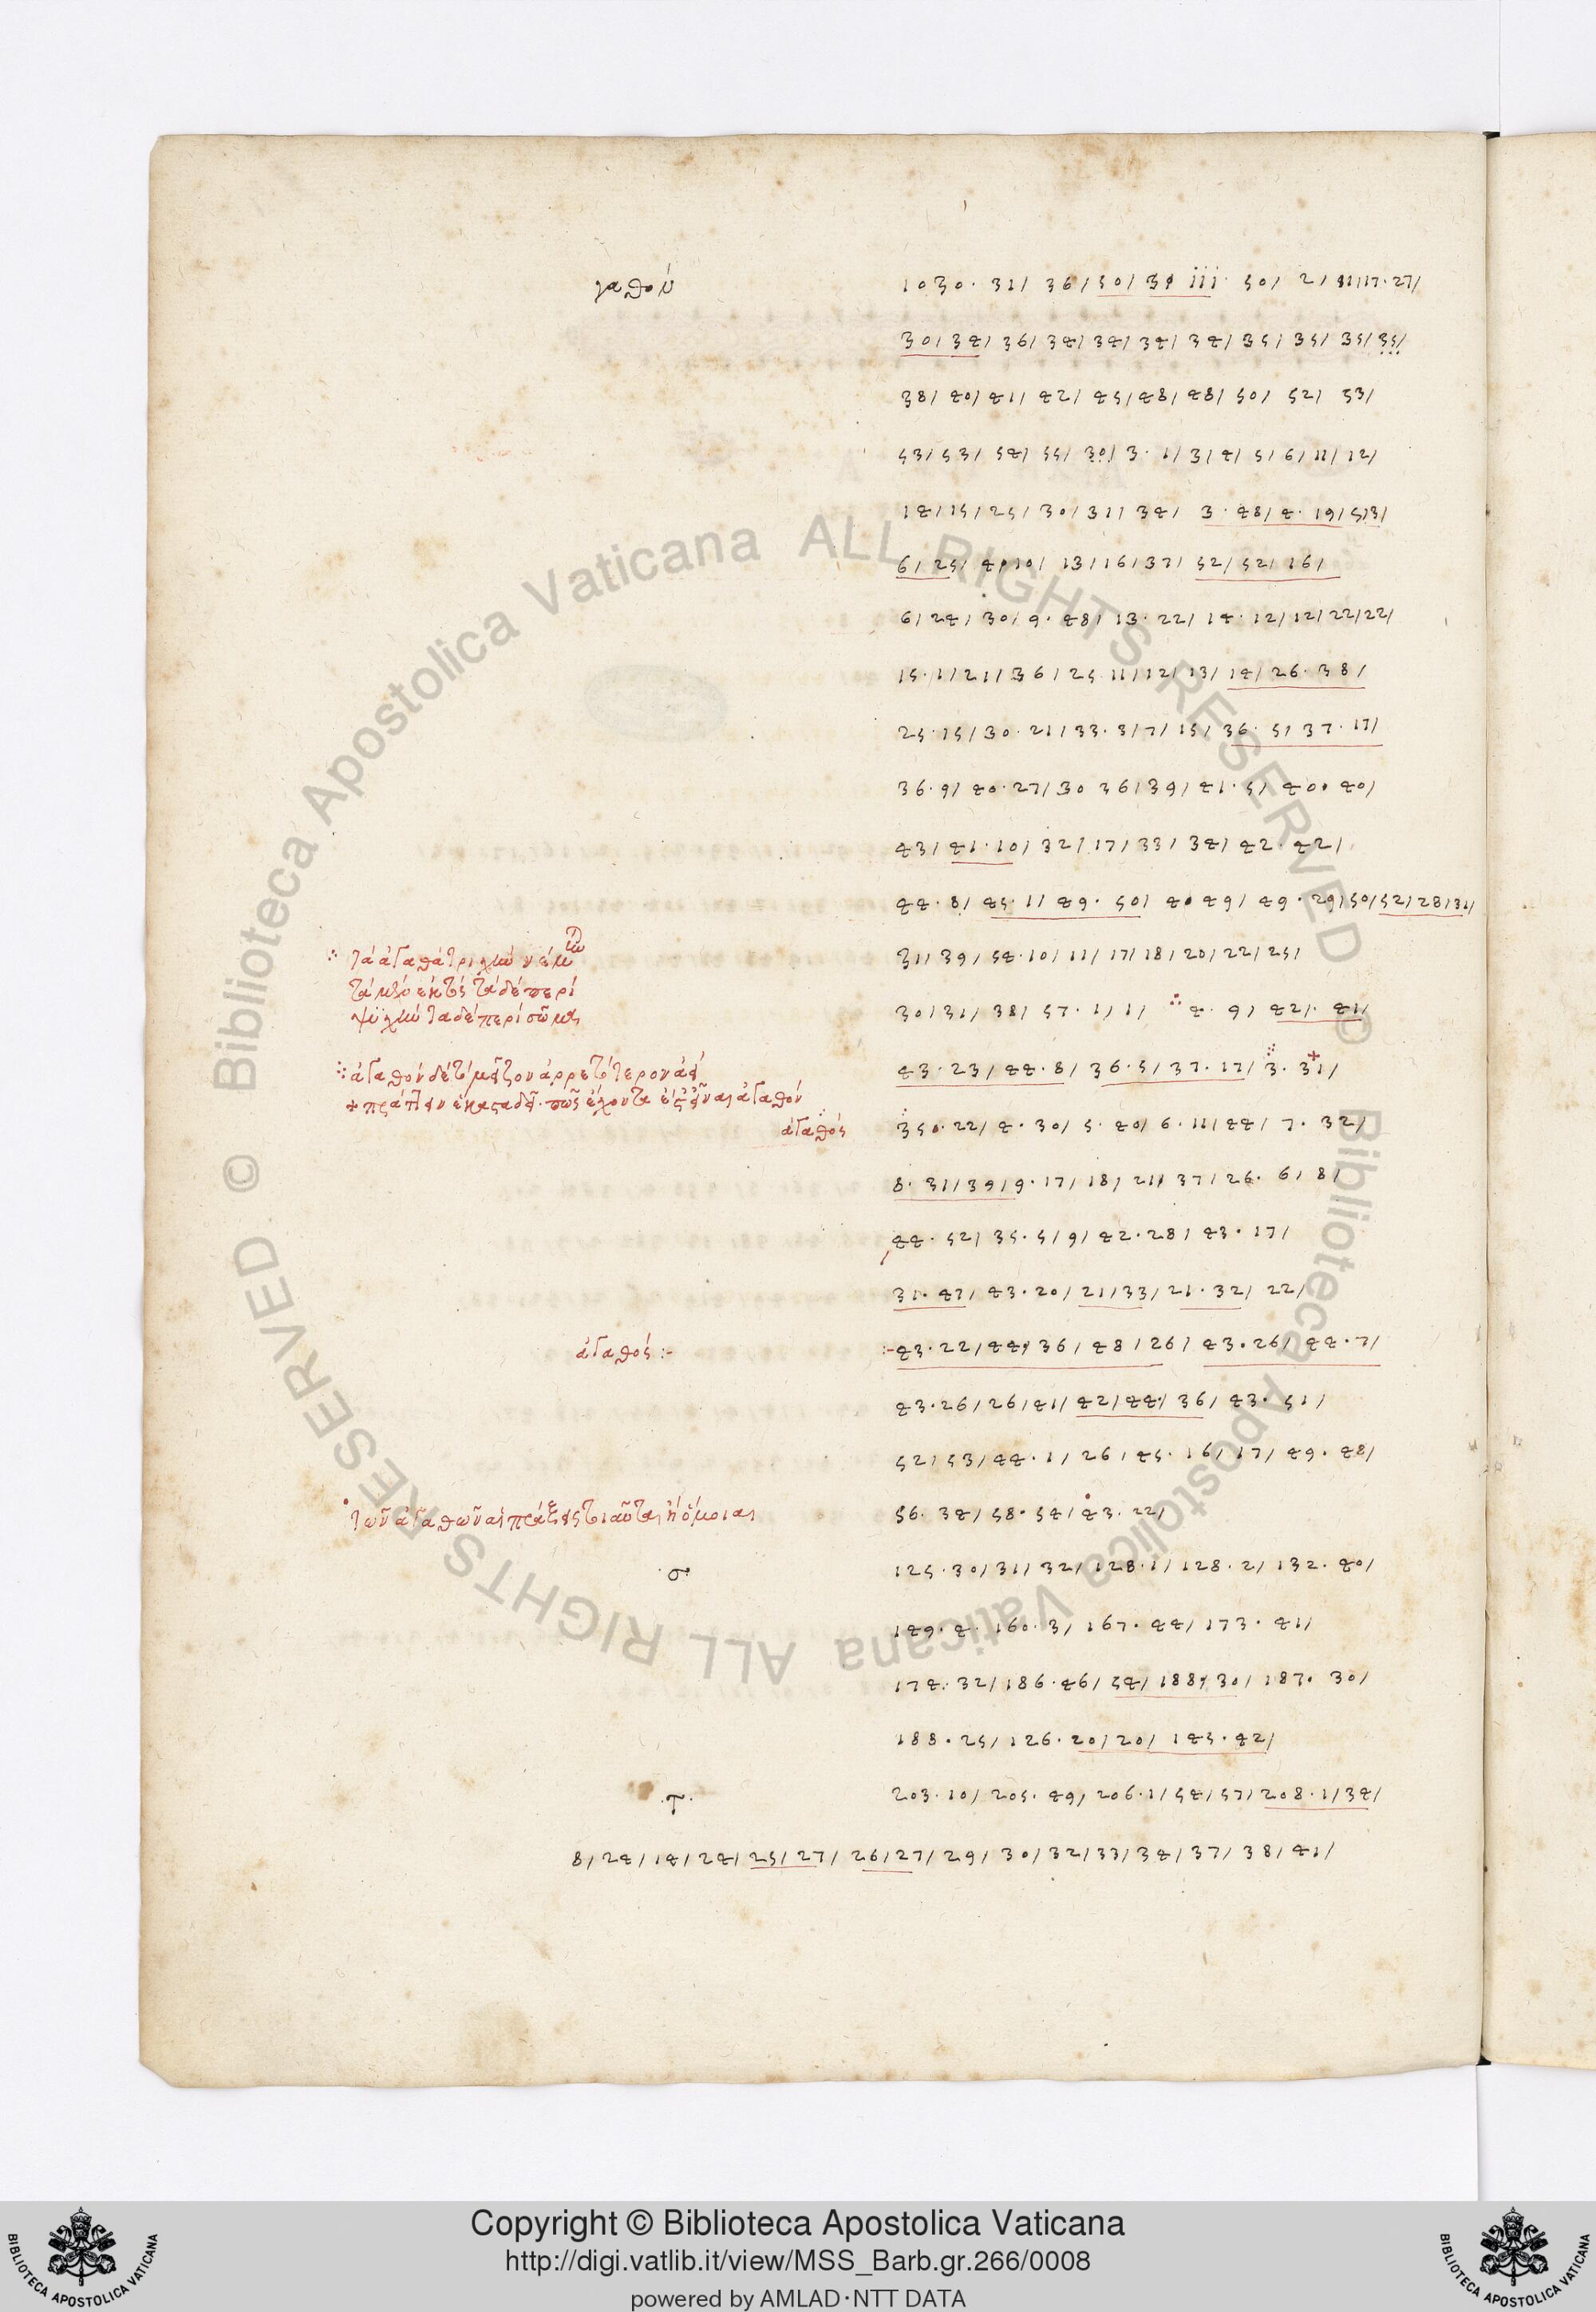 γαθόν 1030. 31/ 36/ 50/ 3 iii. 50/ 2/ 11/17.27/
30/ 34/ 36/ 34/ 34/ 34/ 34/ 35/ 35/ 35/ 35/
38/ 40/ 41/ 42/ 45/ 48/ 48/ 50/ 52/ 53/
53/ 53/ 54/ 55/ 30/ 3. 1/ 3/ 4/ 5/ 6/ 11/ 12/
14/ 15/ 25/ 30/ 31/ 34/ 3. 48/ 4. 19/ 5/3/
6/ 25/ 4. 10/ 13/ 16/ 37/ 52/ 52/ 16/
6/ 24/ 30/ 9. 48/ 13. 22/ 14. 12/ 12/ 22/ 22/
15. 1/ 21/ 36/ 25. 11/ 12/ 13/ 14/ 26. 38/
25. 15/ 30. 21/ 33. 3/ 7/ 15/ 36. 5/ 37. 17/
36. 9/ 40. 27/ 30 36/ 39/ 41. 5/ 40. 40/
43/ 41. 10/ 32/ 17/ 33/ 34/ 42. 42/
44. 8/ 45. 1/ 49. 50/ 40 49/ 49. 29/ 50/ 52/ 28/ 31/
τὰ ἀγαθὰ τριχῶς νέμεται 31/ 39/ 54. 10/ 11/ 17/ 18/ 20/ 22/ 25/
τὰ μὲν ἐκτός τὰ δὲ περὶ
ψυχὴν τὰ δὲ περὶ σῶμα 30/ 31/ 38/ 57. 1/ 1/ ∴ 4. 9/ 42/. 41/
ἀγαθὸν δὲ τιμιώτερον 43. 23/ 44. 8/ 36. 5/ 37. 17/ 3. 31/
+ πράττειν ἕκαστα δεῖ. πῶς ἔχοντα ἐξεῖναι ἀγαθόν
ἀγαθός 350. 22/ 4. 30/ 5. 40/ 6. 11/ 44/ 7. 32/
8. 31/ 39/ 9. 17/ 18/ 21/ 37/ 26. 6/ 8/
44. 52/ 35. 5/ 9/ 42. 28/ 43. 17/
31. 47/ 43. 20/ 21/ 33/ 21. 32/ 22/
ἀγαθός :- :- 43. 22/ 44/ 36/ 48/ 26/ 43. 26/ 44. 7/
43. 26/ 26/ 41/ 42/ 44/ 36/ 43. 51/
52/ 53/ 44. 1/ 26/ 45. 16/ 17/ 49. 48/
τῶν ἀγαθῶν αἱ πράξεις τοιαῦται ἢ ὅμοιαι 56. 34/ 58. 54/ 43. 22/
.σ. 125. 30/ 31/ 32/ 128. 1/ 128. 2/ 132. 40/
149. 4. 160. 3/ 167. 44/ 173. 41/
174. 32/ 186. 46/ 54/ 188/ 30/ 187. 30/
188. 25/ 126. 20/ 20/ 145. 42/
.τ. 203. 10/ 205. 49/ 206. 1/ 54/ 57/ 208. 1/ 34/
8/ 24/ 14/ 24/ 25/ 27/ 26/ 27/ 29/ 30/ 32/ 33/ 34/ 37/ 38/ 41/
Copyright © Biblioteca Apostolica Vaticana
http://digi.vatlib.it/view/MSS_Barb.gr.266/0008
powered by AMLAD·NTT DATA